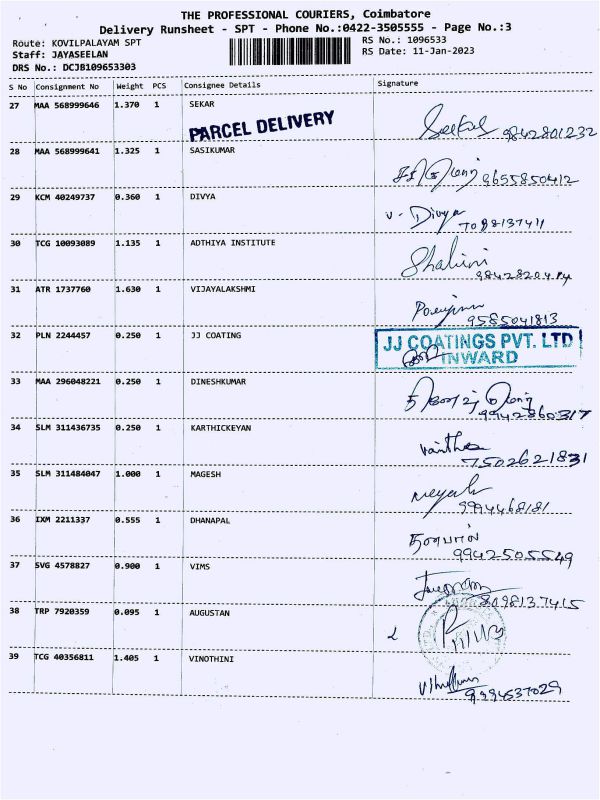 THE PROFESSIONAL COURIERS, Coimbatore
Delivery Runsheet - SPT - Phone No.:0422-3505555 - Page No.:3
Route: KOVILPALAYAM SPT
RS No.: 1096533
Staff: JAYASEELAN
RS Date: 11-Jan-2023
DRS No.: DCJB109653303
S No Consignment No Weight PCS Consignee Details Signature
27 MAA 568999646 1.370 1 SEKAR
PARCEL DELIVERY
9842801232
28 MAA 568999641 1.325 1 SASIKUMAR
9655850412
29 KCM 40249737 0.360 1 DIVYA
V. Divya
7088137411
30 TCG 10093089 1.135 1 ADTHIYA INSTITUTE
Shalini
31 ATR 1737760 1.630 1 VIJAYALAKSHMI
9585041813
32 PLN 2244457 0.250 1 JJ COATING
JJ COATINGS PVT. LTD
INWARD
33 MAA 296048221 0.250 1 DINESHKUMAR
9942860317
34 SLM 311436735 0.250 1 KARTHICKEYAN
7502621831
35 SLM 311484047 1.000 1 MAGESH
9994468181
36 IXM 2211337 0.555 1 DHANAPAL
9942505549
37 SVG 4578827 0.900 1 VIMS
8098137415
38 TRP 7920359 0.095 1 AUGUSTAN
39 TCG 40356811 1.405 1 VINOTHINI
9994537029